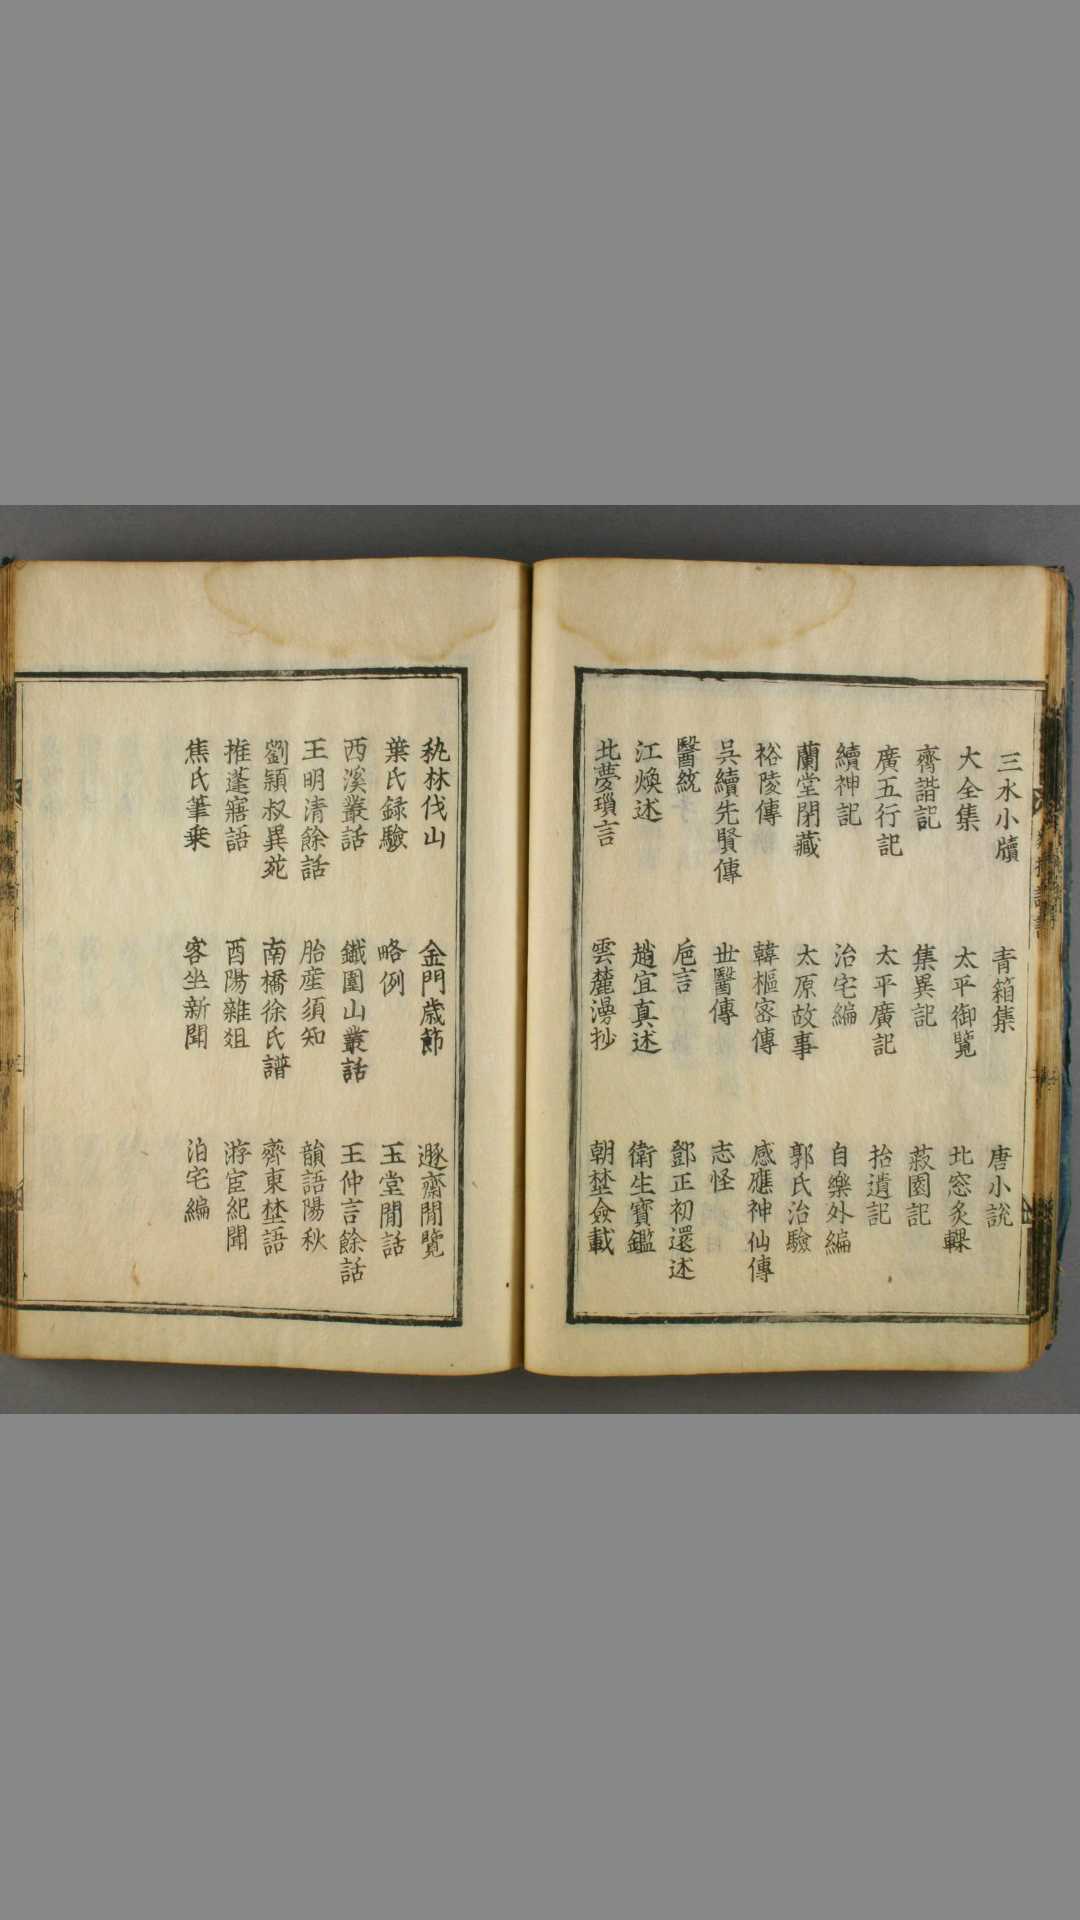 三水小牘　青箱集　唐小說
大全集　太平御覽　北窓炙輠
齊諧記　集異記　菽園記
廣五行記　太平廣記　拾遺記
續神記　治宅編　自樂外編
蘭堂閉藏　太原故事　郭氏治驗
裕陵傳　韓樞密傳　感應神仙傳
吳續先賢傳　世醫傳　志怪
醫統　巵言　鄧正初還述
江煥述　趙宜真述　衛生寶鑑
北夢瑣言　雲麓漫抄　朝埜僉載
埶林伐山　金門歲節　遯齋閒覽
葉氏録驗　略例　玉堂閒話
西溪叢話　鐵圍山叢話　王仲言餘話
王明清餘話　胎産須知　韻語陽秋
劉穎叔異苑　南橋徐氏譜　齊東埜語
推蓬寤語　酉陽雜爼　游宦紀聞
焦氏筆乗　客坐新聞　泊宅編